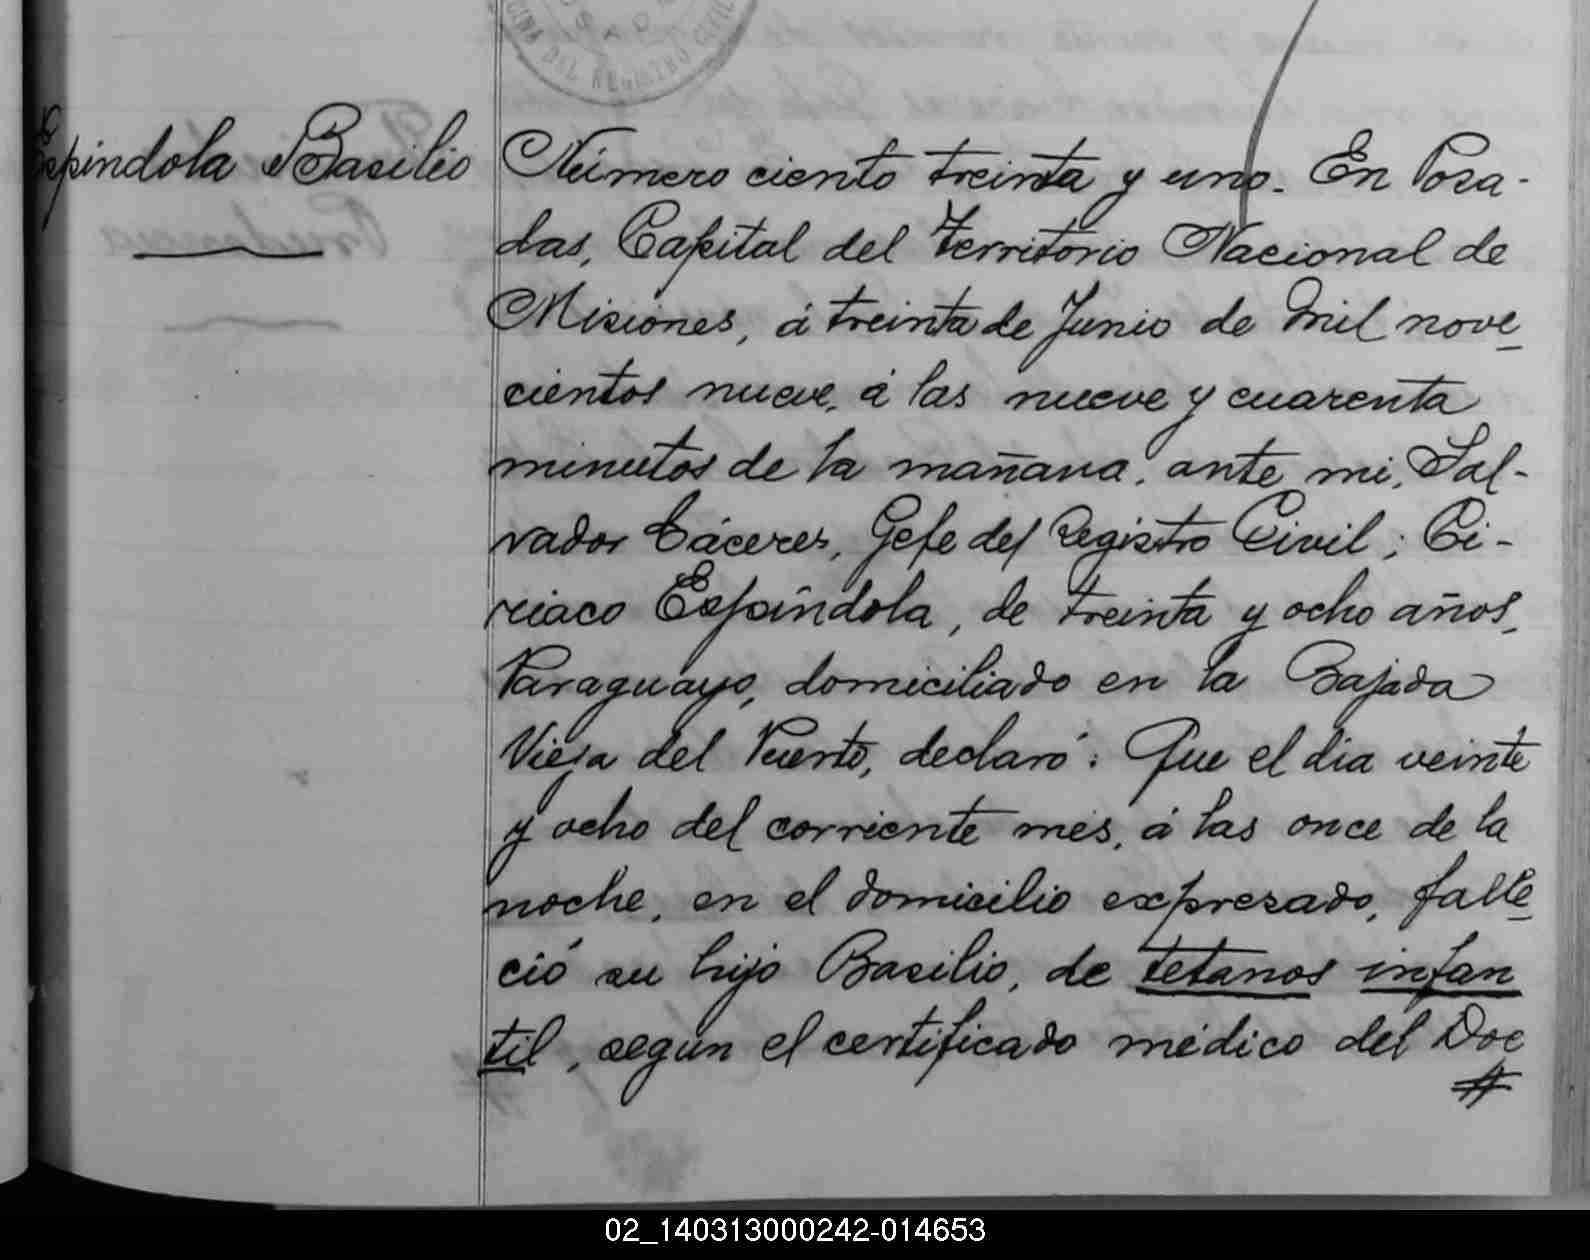 CINA DEL REGISTRO CIVIL
Espindola Basilio
Número ciento treinta y uno. En Posa-
das, Capital del Territorio Nacional de
Misiones, á treinta de Junio de mil nove
cientos nueve, á las nueve y cuarenta
minutos de la mañana, ante mi, Sal-
vador Cáceres, Gefe del Registro Civil; Ci-
riaco Espíndola, de treinta y ocho años,
Paraguayo, domiciliado en la Bajada
Vieja del Puerto, declaró: Que el dia veinte
y ocho del corriente mes, á las once de la
noche, en el domicilio expresado, falle
ció su hijo Basilio, de tetanos infan
til, segun el certificado médico del Doc
02_140313000242-014653